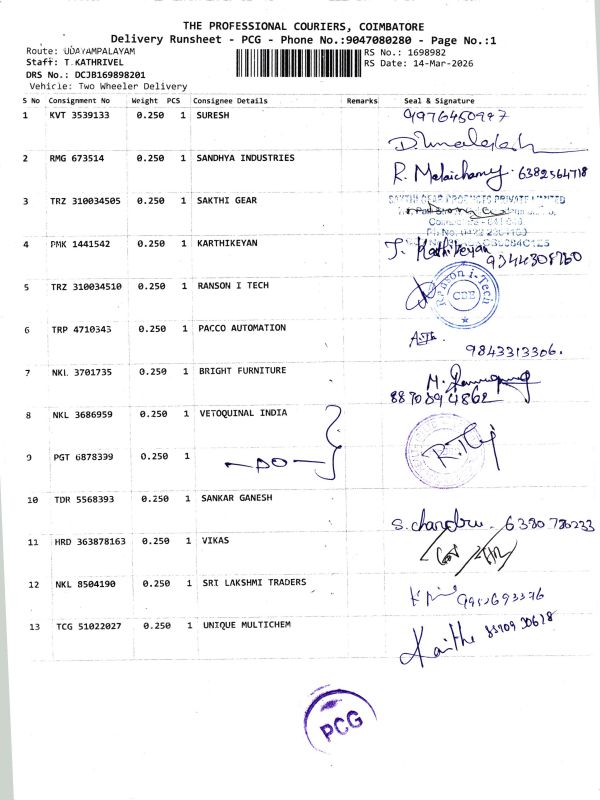 THE PROFESSIONAL COURIERS, COIMBATORE
Delivery Runsheet - PCG - Phone No.:9047080280 - Page No.:1
Route: UDAYAMPALAYAM
RS No.: 1698982
Staff: T.KATHRIVEL
RS Date: 14-Mar-2026
DRS No.: DCJB169898201
Vehicle: Two Wheeler Delivery
S No Consignment No Weight PCS Consignee Details Remarks Seal & Signature
1 KVT 3539133 0.250 1 SURESH
2 RMG 673514 0.250 1 SANDHYA INDUSTRIES R. Malaichamy. 6382564718
3 TRZ 310034505 0.250 1 SAKTHI GEAR SAKTHI GEAR PRODUCTS PRIVATE LIMITED
4 PMK 1441542 0.250 1 KARTHIKEYAN J. Kathikeyan 9344308760
5 TRZ 310034510 0.250 1 RANSON I TECH Ranson i-Tech CBE
6 TRP 4710343 0.250 1 PACCO AUTOMATION 9843313306.
7 NKL 3701735 0.250 1 BRIGHT FURNITURE 8870894862
8 NKL 3686959 0.250 1 VETOQUINAL INDIA
9 PGT 6878399 0.250 1 -DO-
10 TDR 5568393 0.250 1 SANKAR GANESH S. chandru. 6380786233
11 HRD 363878163 0.250 1 VIKAS
12 NKL 8504190 0.250 1 SRI LAKSHMI TRADERS
13 TCG 51022027 0.250 1 UNIQUE MULTICHEM
PCG